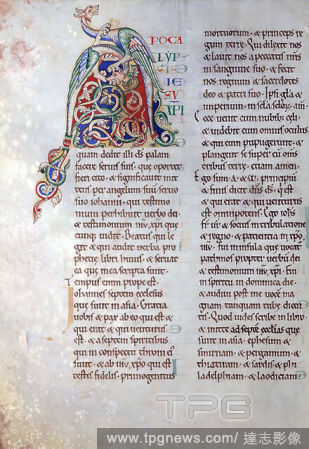 A POCA
LYP
IE
SV XPI
quam dedit illi ds palam
facere seruis suis que oportet
fieri cito · & significauit mit
tens per angelum suū seruo
suo iohanni · qui testimo
nium perhibuit uerbo dei
& testimonium ihu xpi · que
cunq; uidit · Beatus qui le
git · & qui audit uerba pro
phetie libri huius · & seruat
ea que in ea scripta sunt ·
Tempus enim prope est ·
Iohannes septem ecclesiis que
sunt in asia · Gratia
uobis & pax ab eo qui est &
qui erat & qui uenturus
est · & a septem spiritibus
qui in conspectu throni ei'
sunt · & ab ihu xpo qui est
testis fidelis · primogenitus
mortuorum · & princeps re
gum terrę · Qui dilexit nos
& lauit nos a peccatis nris
in sanguine suo · & fecit
nos regnum & sacerdotes
deo & patri suo · ipsi gla &
imperium in scla sclor · am
Ecce uenit cum nubib; celi ·
& uidebit eum omnis oculus
& qui eum pupugerunt · &
plangent se super eū oms
tribus terrę · etiam amen ·
Ego sum · A & Ω · principiū
& finis dicit dns ds · q est
& qui erat & qui uenturus
est omnipotens · Ego iohs
fr ur & socius in tribulatione
& regno · & patientia in xpo
ihu · fui in insula que uocat
pathmos propter uerbū dei
& testimonium ihu xpi · fui
in spiritu in dominica die ·
& audiui post me uocē ma
gnam tanquam tubę dicen
tis · Quod uides scribe in libro
& mitte ad septē ecclias que
sunt in asia · ephesum &
smirnam · & pergamum · &
thiatiram · & sardis · & phi
ladelphiam · & laodiciam
TPG
www.tpgnews.com/ 達志影像